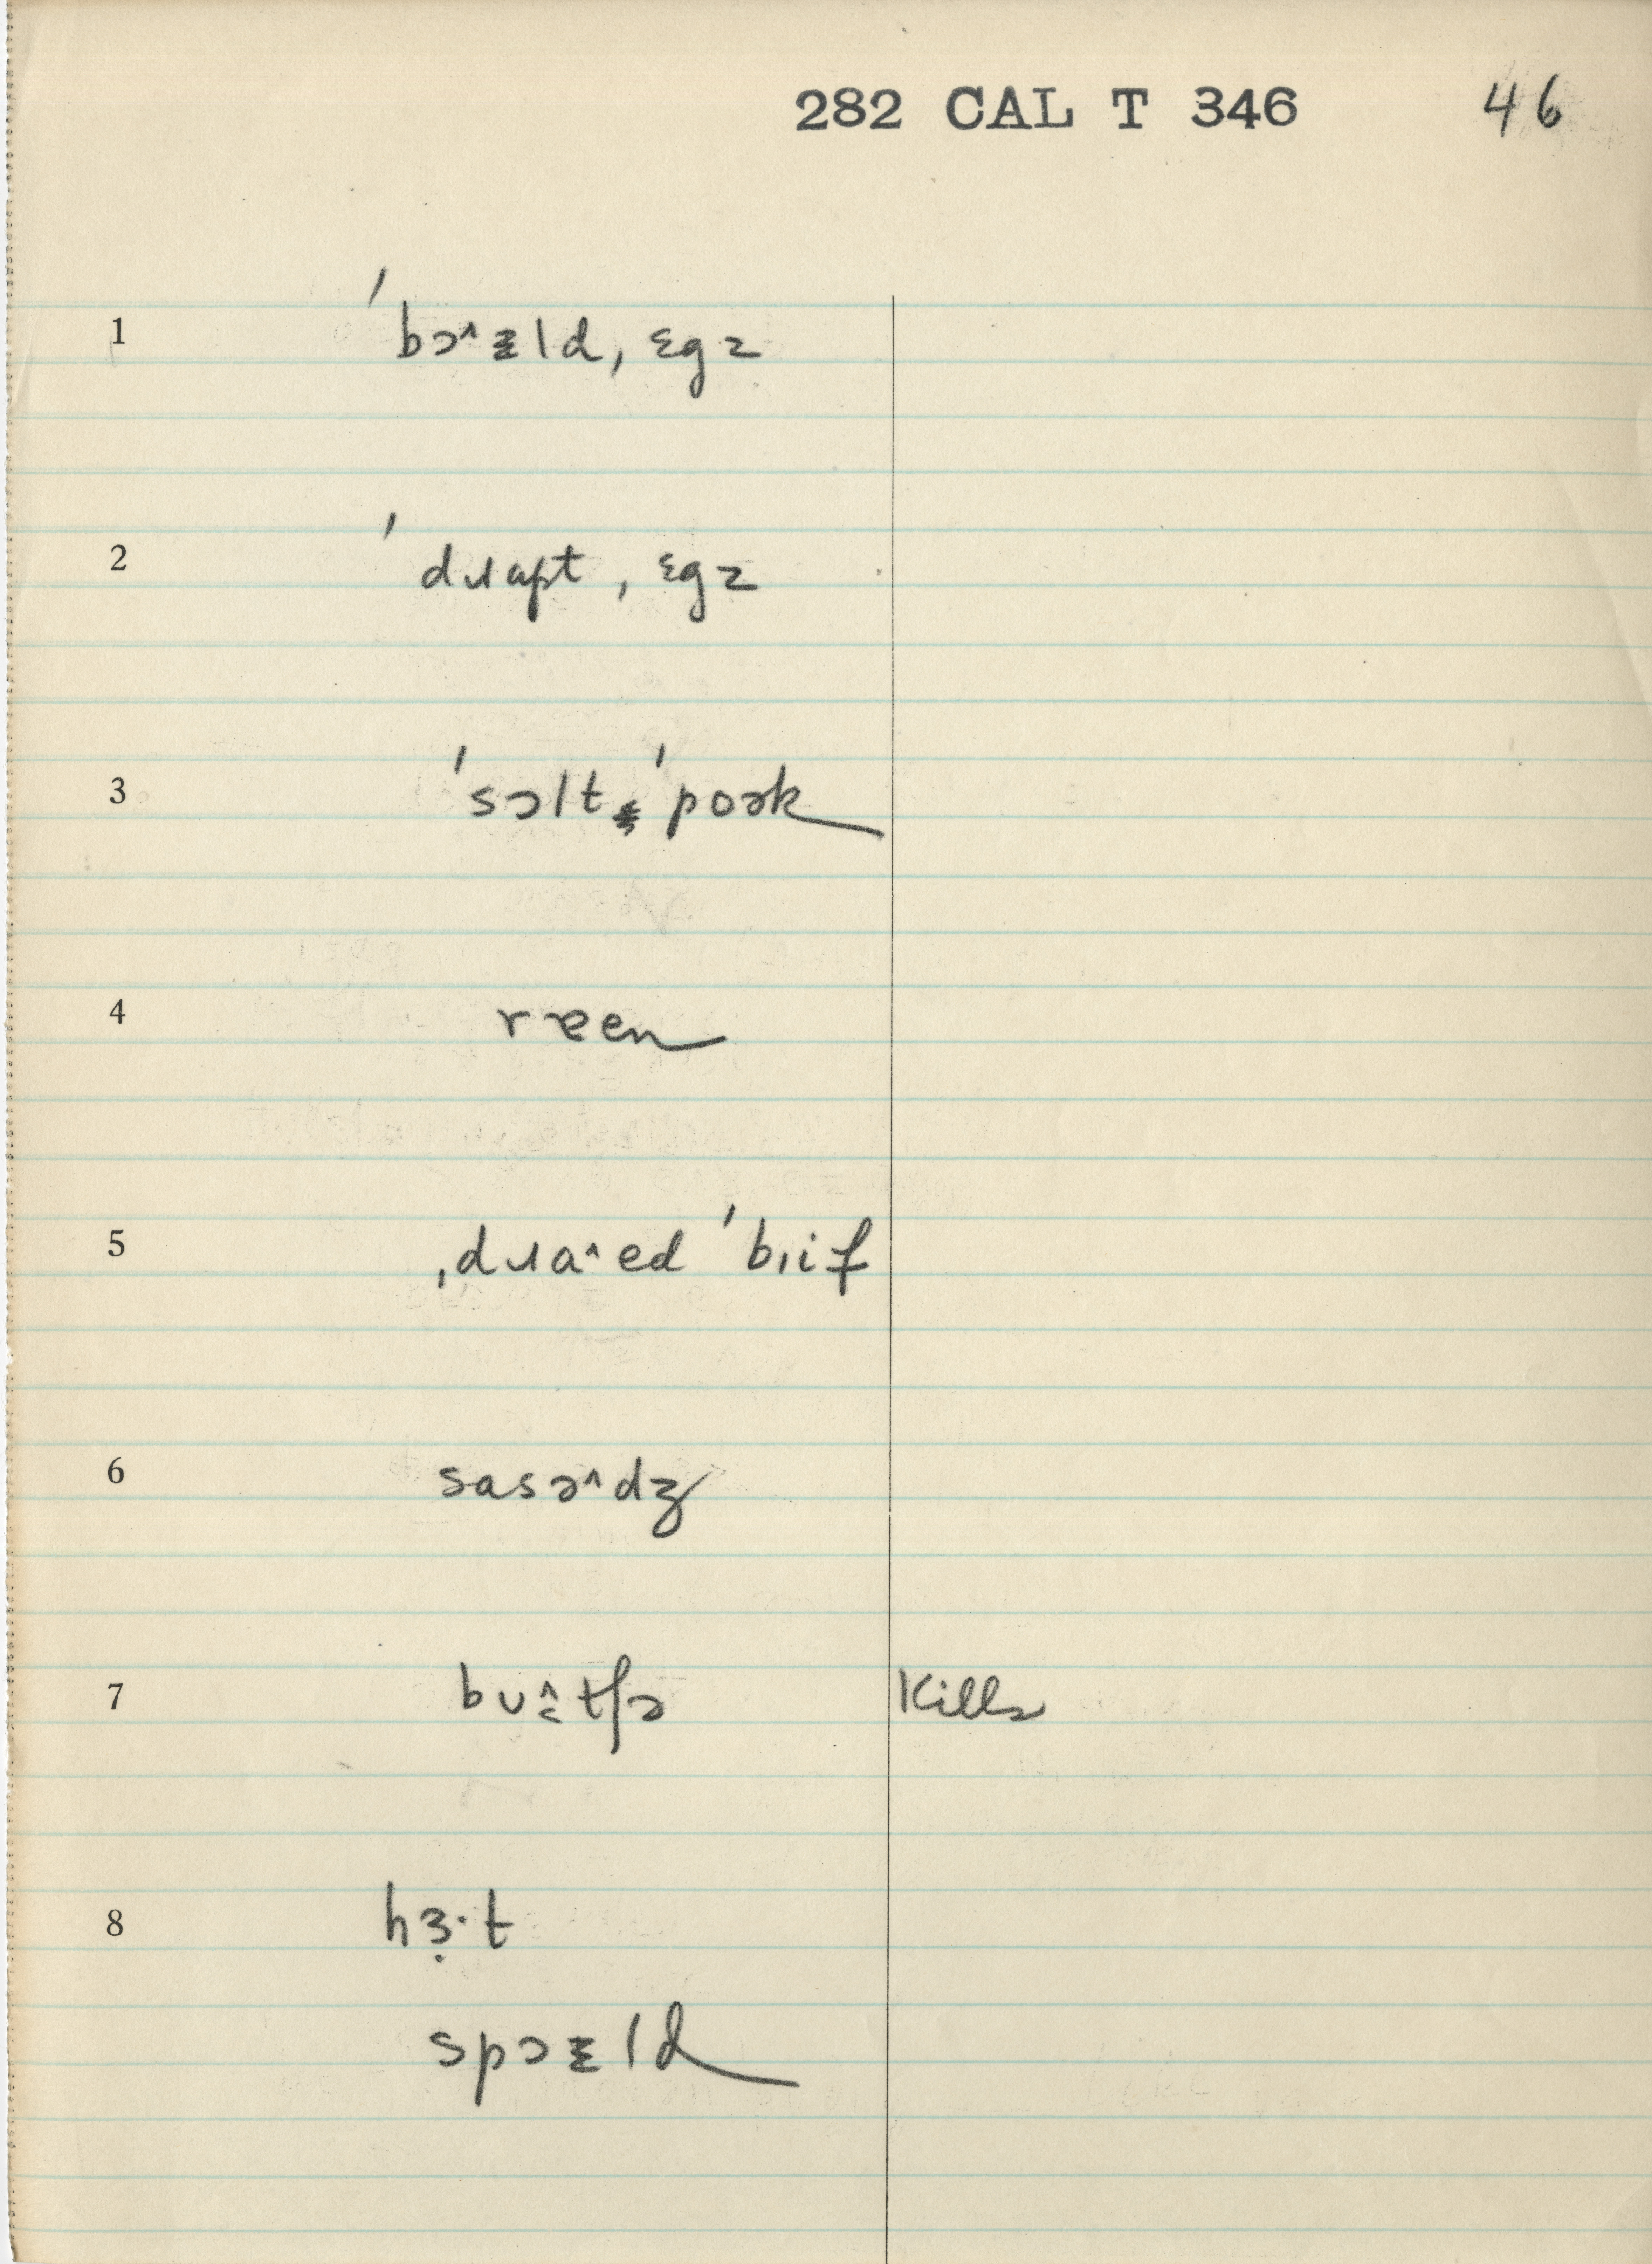 282 CAL T 346 46
1 ˈbɔ˄ɪld, ˌɛgz
2 ˈdɹɑpt, ˌɛgz
3 ˈsɔltˈpoək
4 ræen
5 ˌdɹaˑed ˈbɪif
6 sasə˄dʒ
7 bʊ˄tʃə Kills
8 hɜ̣·t
spɔɪld